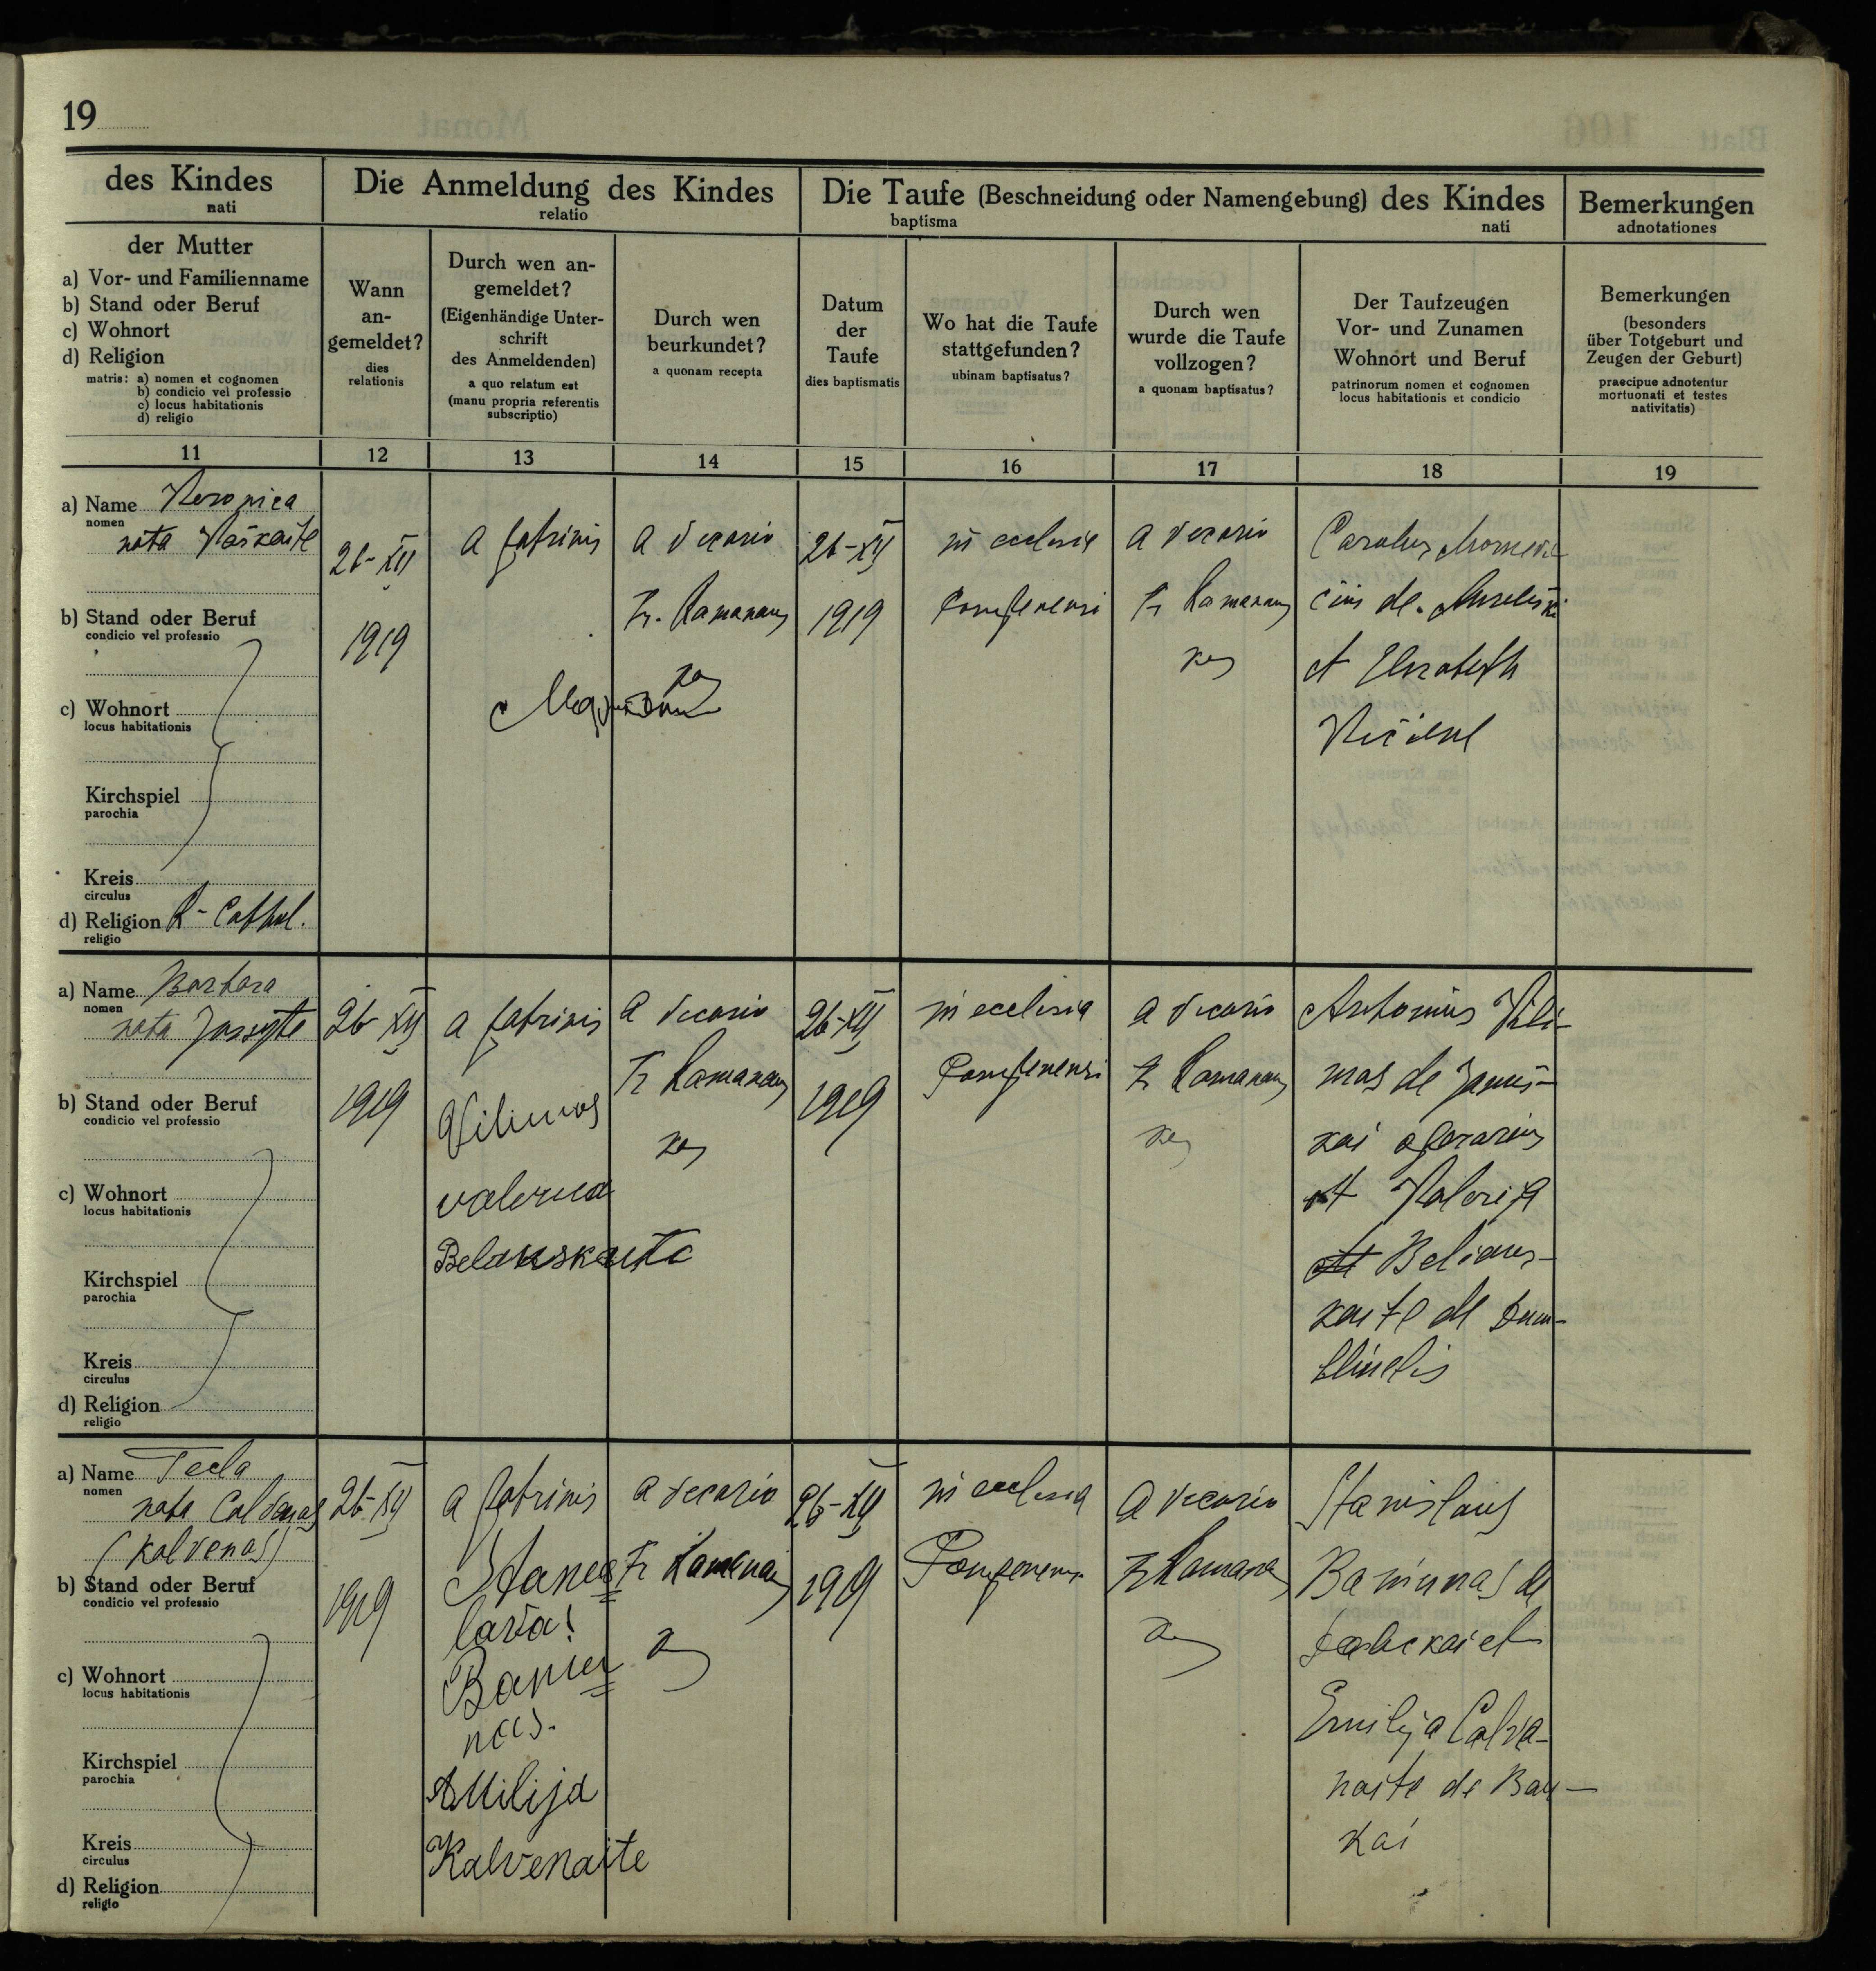 19
des Kindes
nati
Die Anmeldung des Kindes
relatio
Die Taufe (Beschneidung oder Namengebung) des Kindes
baptisma nati
Bemerkungen
adnotationes
der Mutter
a) Vor- und Familienname
b) Stand oder Beruf
c) Wohnort
d) Religion
matris: a) nomen et cognomen
b) condicio vel professio
c) locus habitationis
d) religio
Wann
an-
gemeldet?
dies
relationis
Durch wen an-
gemeldet?
(Eigenhändige Unter-
schrift
des Anmeldenden)
a quo relatum est
(manu propria referentis
subscriptio)
Durch wen
beurkundet?
a quonam recepta
Datum
der
Taufe
dies baptismatis
Wo hat die Taufe
stattgefunden?
ubinam baptisatus?
Durch wen
wurde die Taufe
vollzogen?
a quonam baptisatus?
Der Taufzeugen
Vor- und Zunamen
Wohnort und Beruf
patrinorum nomen et cognomen
locus habitationis et condicio
Bemerkungen
(besonders
über Totgeburt und
Zeugen der Geburt)
praecipue adnotentur
mortuonati et testes
nativitatis)
11 12 13 14 15 16 17 18 19
a) Name Veronica
nomen
nata Vaškaite
b) Stand oder Beruf
condicio vel professio
c) Wohnort
locus habitationis
Kirchspiel
parochia
Kreis
circulus
d) Religion R-Cathol.
religio
26-XII
1919
a patrinis
a vicario
Fr. Ramanaus
kas
26-XII
1919
in ecclesia
Pompenensi
a vicario
Fr Ramanaus
kas
Carolus
cius de
et Elisabeth
a) Name Barbara
nomen
nata
b) Stand oder Beruf
condicio vel professio
c) Wohnort
locus habitationis
Kirchspiel
parochia
Kreis
circulus
d) Religion
religio
26-XII
1919
a patrinis
Vilimas
valerua
Belanskaite
a vicario
Fr Ramanaus
kas
26-XII
1919
in ecclesia
Pompenensi
a vicario
Fr Ramanaus
kas
Antonius Vili-
mas de Januš-
kai operarius
et Valerija
et Belians-
kaite de
a) Name Tecla
nomen
nata Calvenas
(Kalvenas)
b) Stand oder Beruf
condicio vel professio
c) Wohnort
locus habitationis
Kirchspiel
parochia
Kreis
circulus
d) Religion
religio
26-XII
1919
a patrinis
Stanes=
lava!
Baniu=
nas.
AMilija
Kalvenaite
a vicario
Fr Ramanaus
26-XII
1919
in ecclesia
Pompenensi
a vicario
Fr Ramanaus
Stanislaus
Baniunas de
Emilija Calve-
naite de Bau-
kai